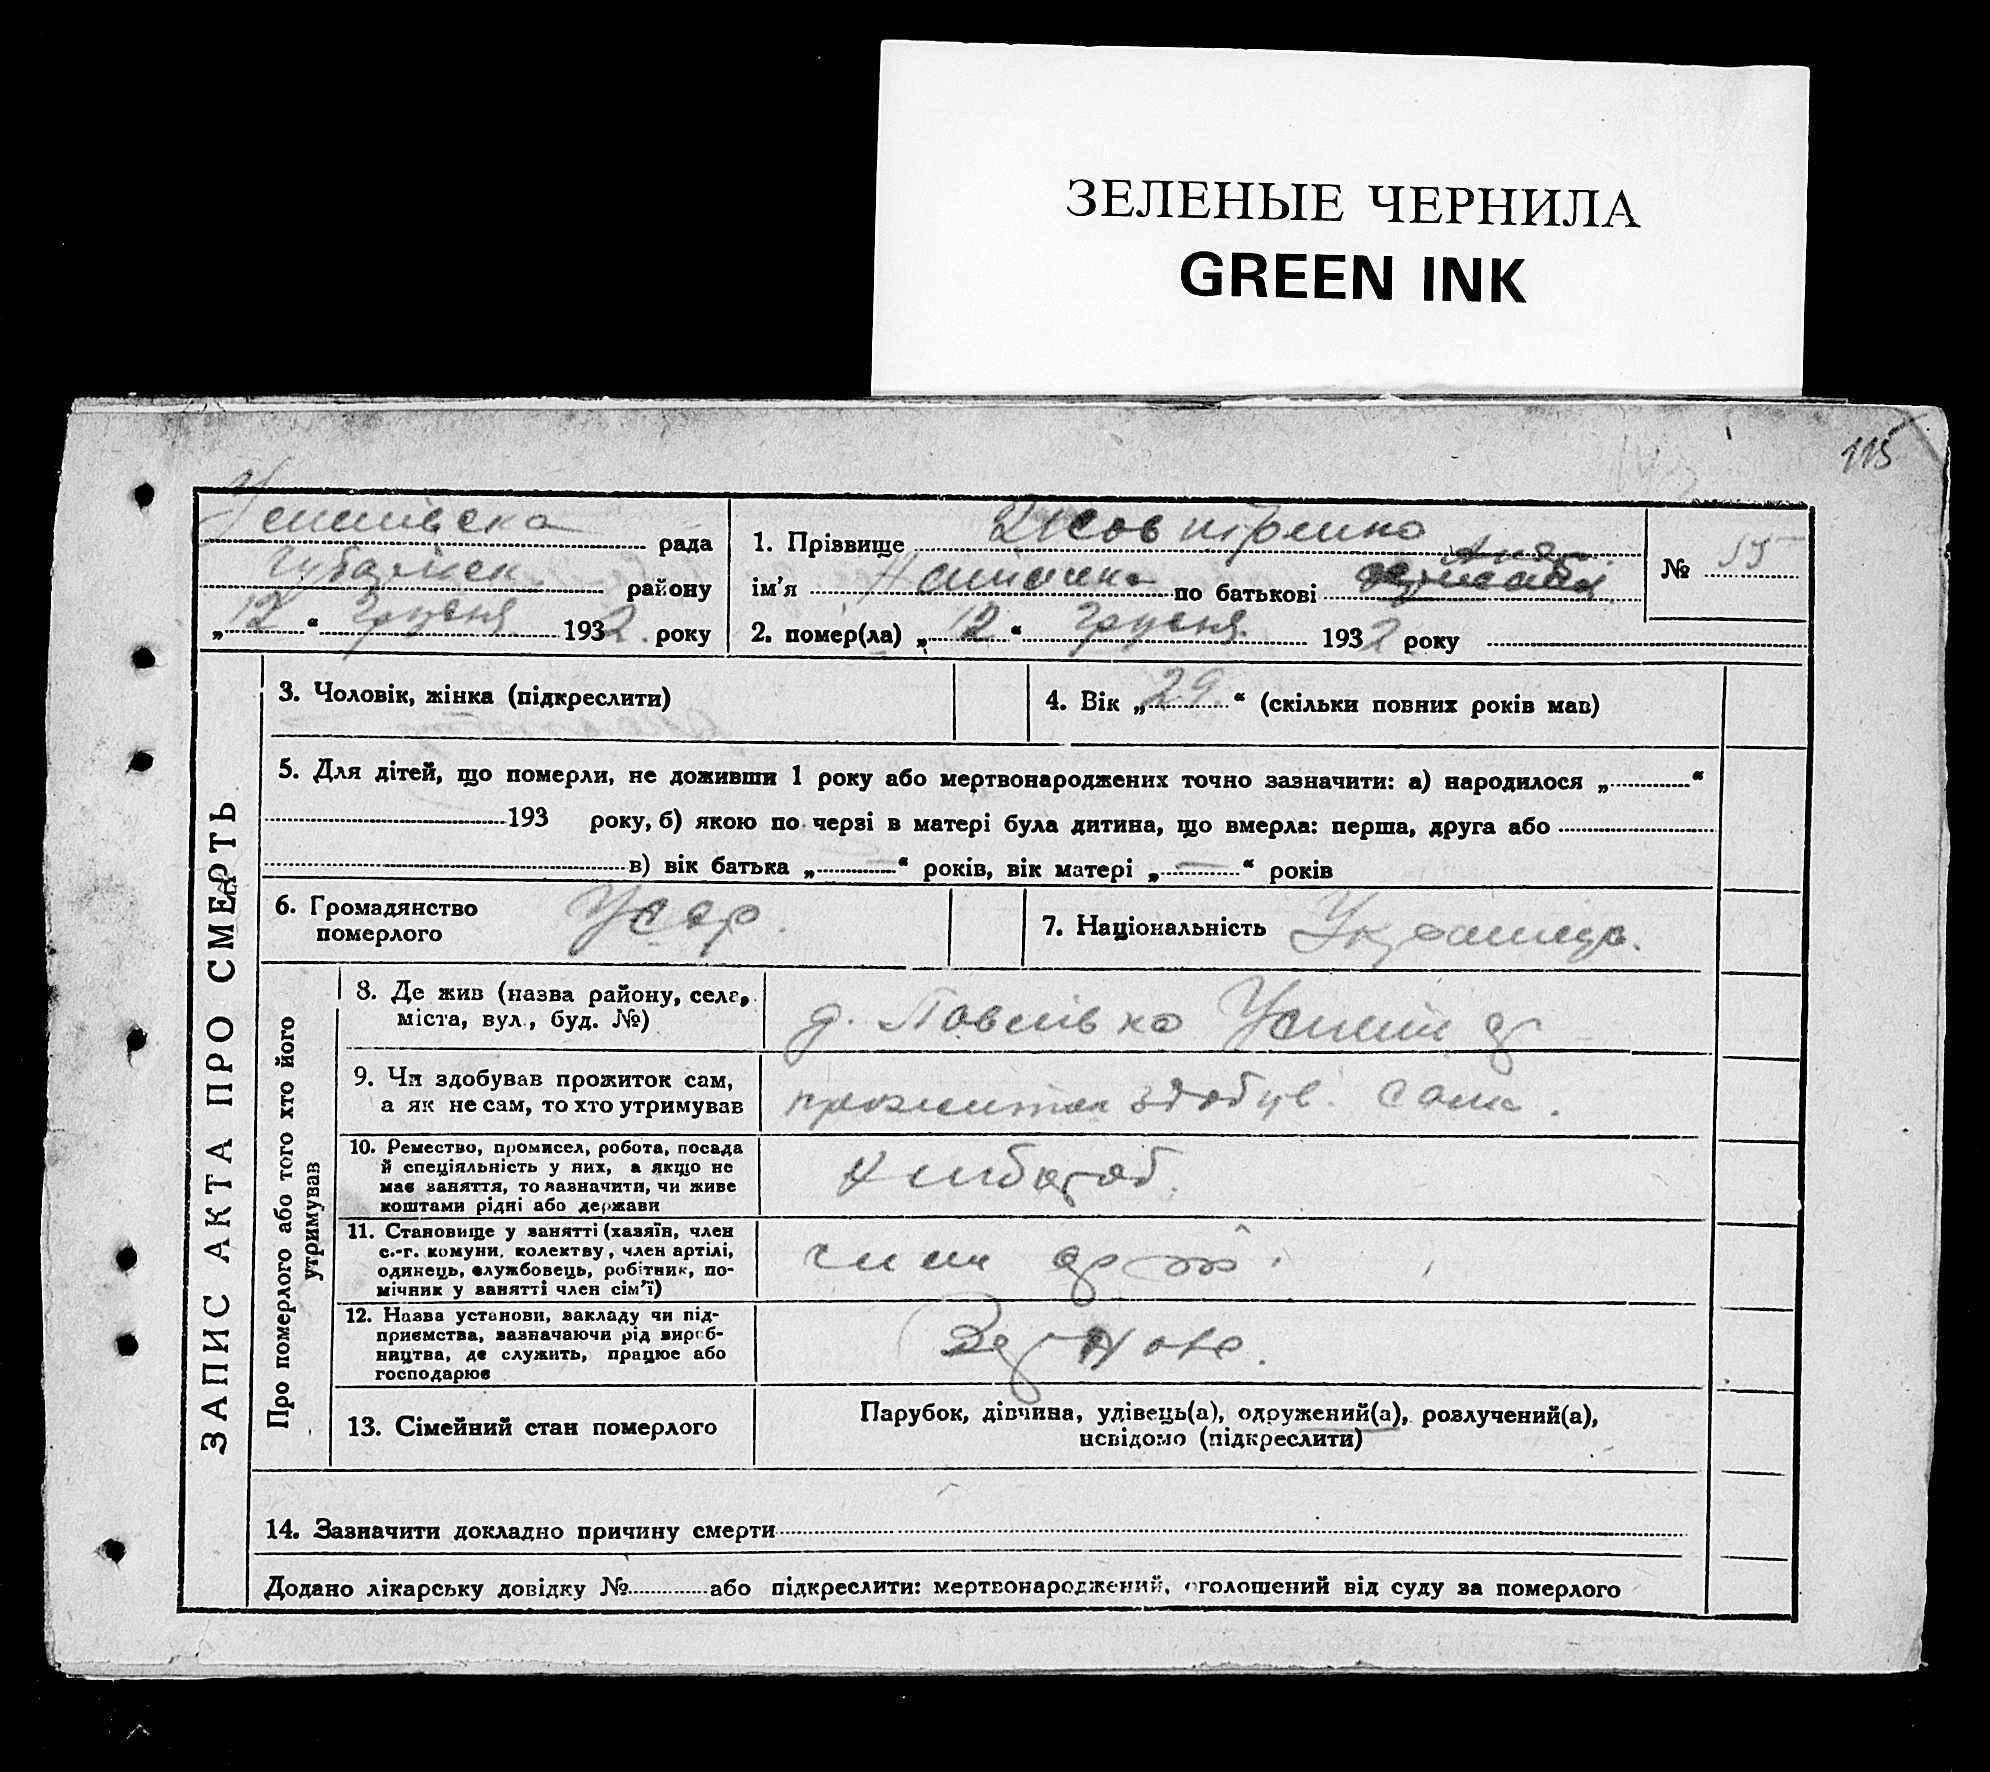 ЗЕЛЕНЫЕ ЧЕРНИЛА
GREEN INK
115
рада
району
„12“ грудня 1932 року
1. Прізвище
ім'я по батькові
2. помер(ла) „12“ грудня 1932 року
№ 55
ЗАПИС АКТА ПРО СМЕРТЬ
3. Чоловік, жінка (підкреслити)
4. Вік „29“ (скільки повних років мав)
5. Для дітей, що померли, не доживши 1 року або мертвонароджених точно зазначити: а) народилося „ “
193 року, б) якою по черзі в матері була дитина, що вмерла: перша, друга або
в) вік батька „—“ років, вік матері „—“ років
6. Громадянство
померлого
Усср.
7. Національність Українець.
Про померлого або того хто його
утримував
8. Де жив (назва району, села,
міста, вул., буд. №)
9. Чи здобував прожиток сам,
а як не сам, то хто утримував
прожиток здобув. сама.
10. Ремество, промисел, робота, посада
й спеціяльність у них, а якщо не
має заняття, то зазначити, чи живе
коштами рідні або держави
Хлібороб.
11. Становище у занятті (хазяїн, член
с.-г. комуни, колектву, член артілі,
одинець, службовець, робітник, по-
мічник у занятті член сім'ї)
член арт
12. Назва установи, закладу чи під-
приємства, зазначаючи рід вироб-
ництва, де служить, працює або
господарює
Зернове.
13. Сімейний стан померлого
Парубок, дівчина, удівець(а), одружений(а), розлучений(а),
невідомо (підкреслити)
14. Зазначити докладно причину смерти
Додано лікарську довідку № або підкреслити: мертвонароджений, оголошений від суду за померлого